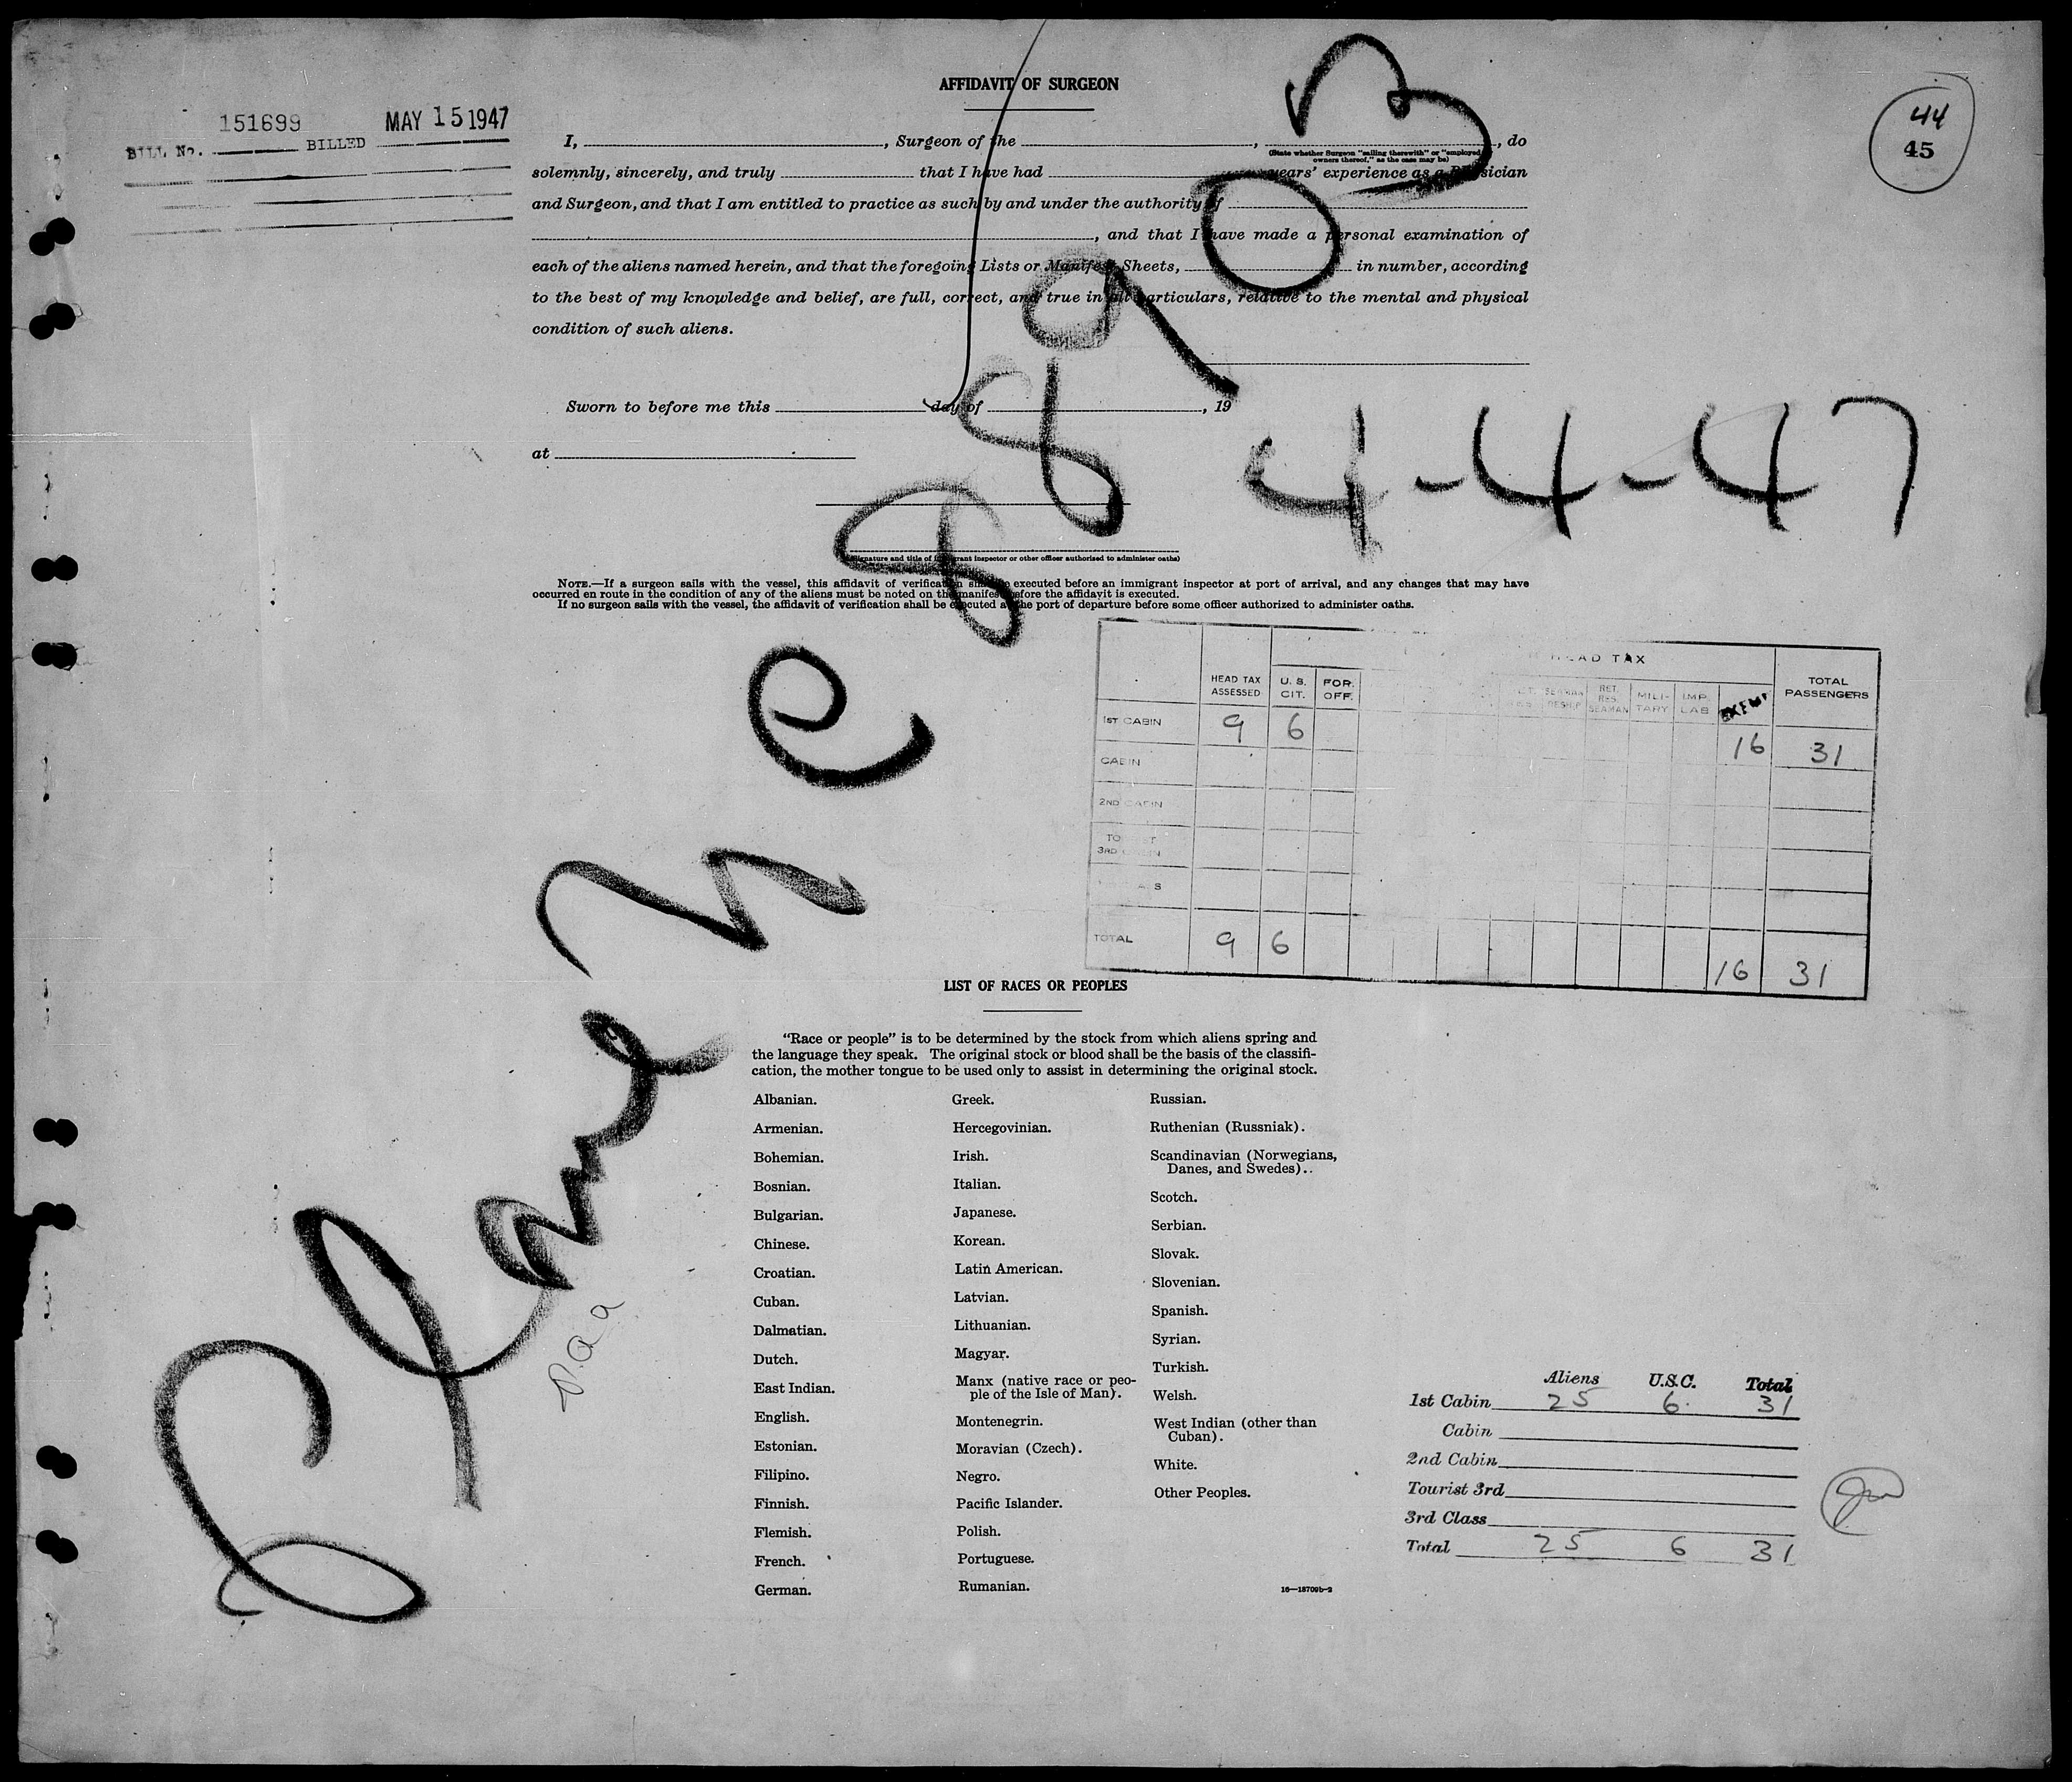 AFFIDAVIT OF SURGEON
44
45
151699 MAY 15 1947
BILL No. BILLED
I, , Surgeon of the , , do
(State whether Surgeon "sailing therewith" or "employed by owners thereof," as the case may be)
solemnly, sincerely, and truly that I have had years' experience as a Physician
and Surgeon, and that I am entitled to practice as such by and under the authority of
, and that I have made a personal examination of
each of the aliens named herein, and that the foregoing Lists or Manifest Sheets, in number, according
to the best of my knowledge and belief, are full, correct, and true in all particulars, relative to the mental and physical
condition of such aliens.
Sworn to before me this day of , 19
at
Plane 88903
4-4-47
(Signature and title of immigrant inspector or other officer authorized to administer oaths)
NOTE.—If a surgeon sails with the vessel, this affidavit of verification shall be executed before an immigrant inspector at port of arrival, and any changes that may have
occurred en route in the condition of any of the aliens must be noted on the manifest before the affidavit is executed.
If no surgeon sails with the vessel, the affidavit of verification shall be executed at the port of departure before some officer authorized to administer oaths.
HEAD TAX
HEAD TAX ASSESSED U. S. CIT. FOR. OFF. SEAMAN RET. RES. SEAMAN MILI- TARY IMP. LAB EXEMPT TOTAL PASSENGERS
1ST CABIN 9 6 16 31
CABIN
2ND CABIN
3RD CABIN
TOTAL 9 6 16 31
LIST OF RACES OR PEOPLES
"Race or people" is to be determined by the stock from which aliens spring and
the language they speak. The original stock or blood shall be the basis of the classifi-
cation, the mother tongue to be used only to assist in determining the original stock.
Albanian.
Armenian.
Bohemian.
Bosnian.
Bulgarian.
Chinese.
Croatian.
Cuban.
Dalmatian.
Dutch.
East Indian.
English.
Estonian.
Filipino.
Finnish.
Flemish.
French.
German.
Greek.
Hercegovinian.
Irish.
Italian.
Japanese.
Korean.
Latin American.
Latvian.
Lithuanian.
Magyar.
Manx (native race or peo-
ple of the Isle of Man).
Montenegrin.
Moravian (Czech).
Negro.
Pacific Islander.
Polish.
Portuguese.
Rumanian.
Russian.
Ruthenian (Russniak).
Scandinavian (Norwegians,
Danes, and Swedes)..
Scotch.
Serbian.
Slovak.
Slovenian.
Spanish.
Syrian.
Turkish.
Welsh.
West Indian (other than
Cuban).
White.
Other Peoples.
16—18709b-2
Paa
Aliens U.S.C. Total
1st Cabin 25 6 31
Cabin
2nd Cabin
Tourist 3rd
3rd Class
Total 25 6 31